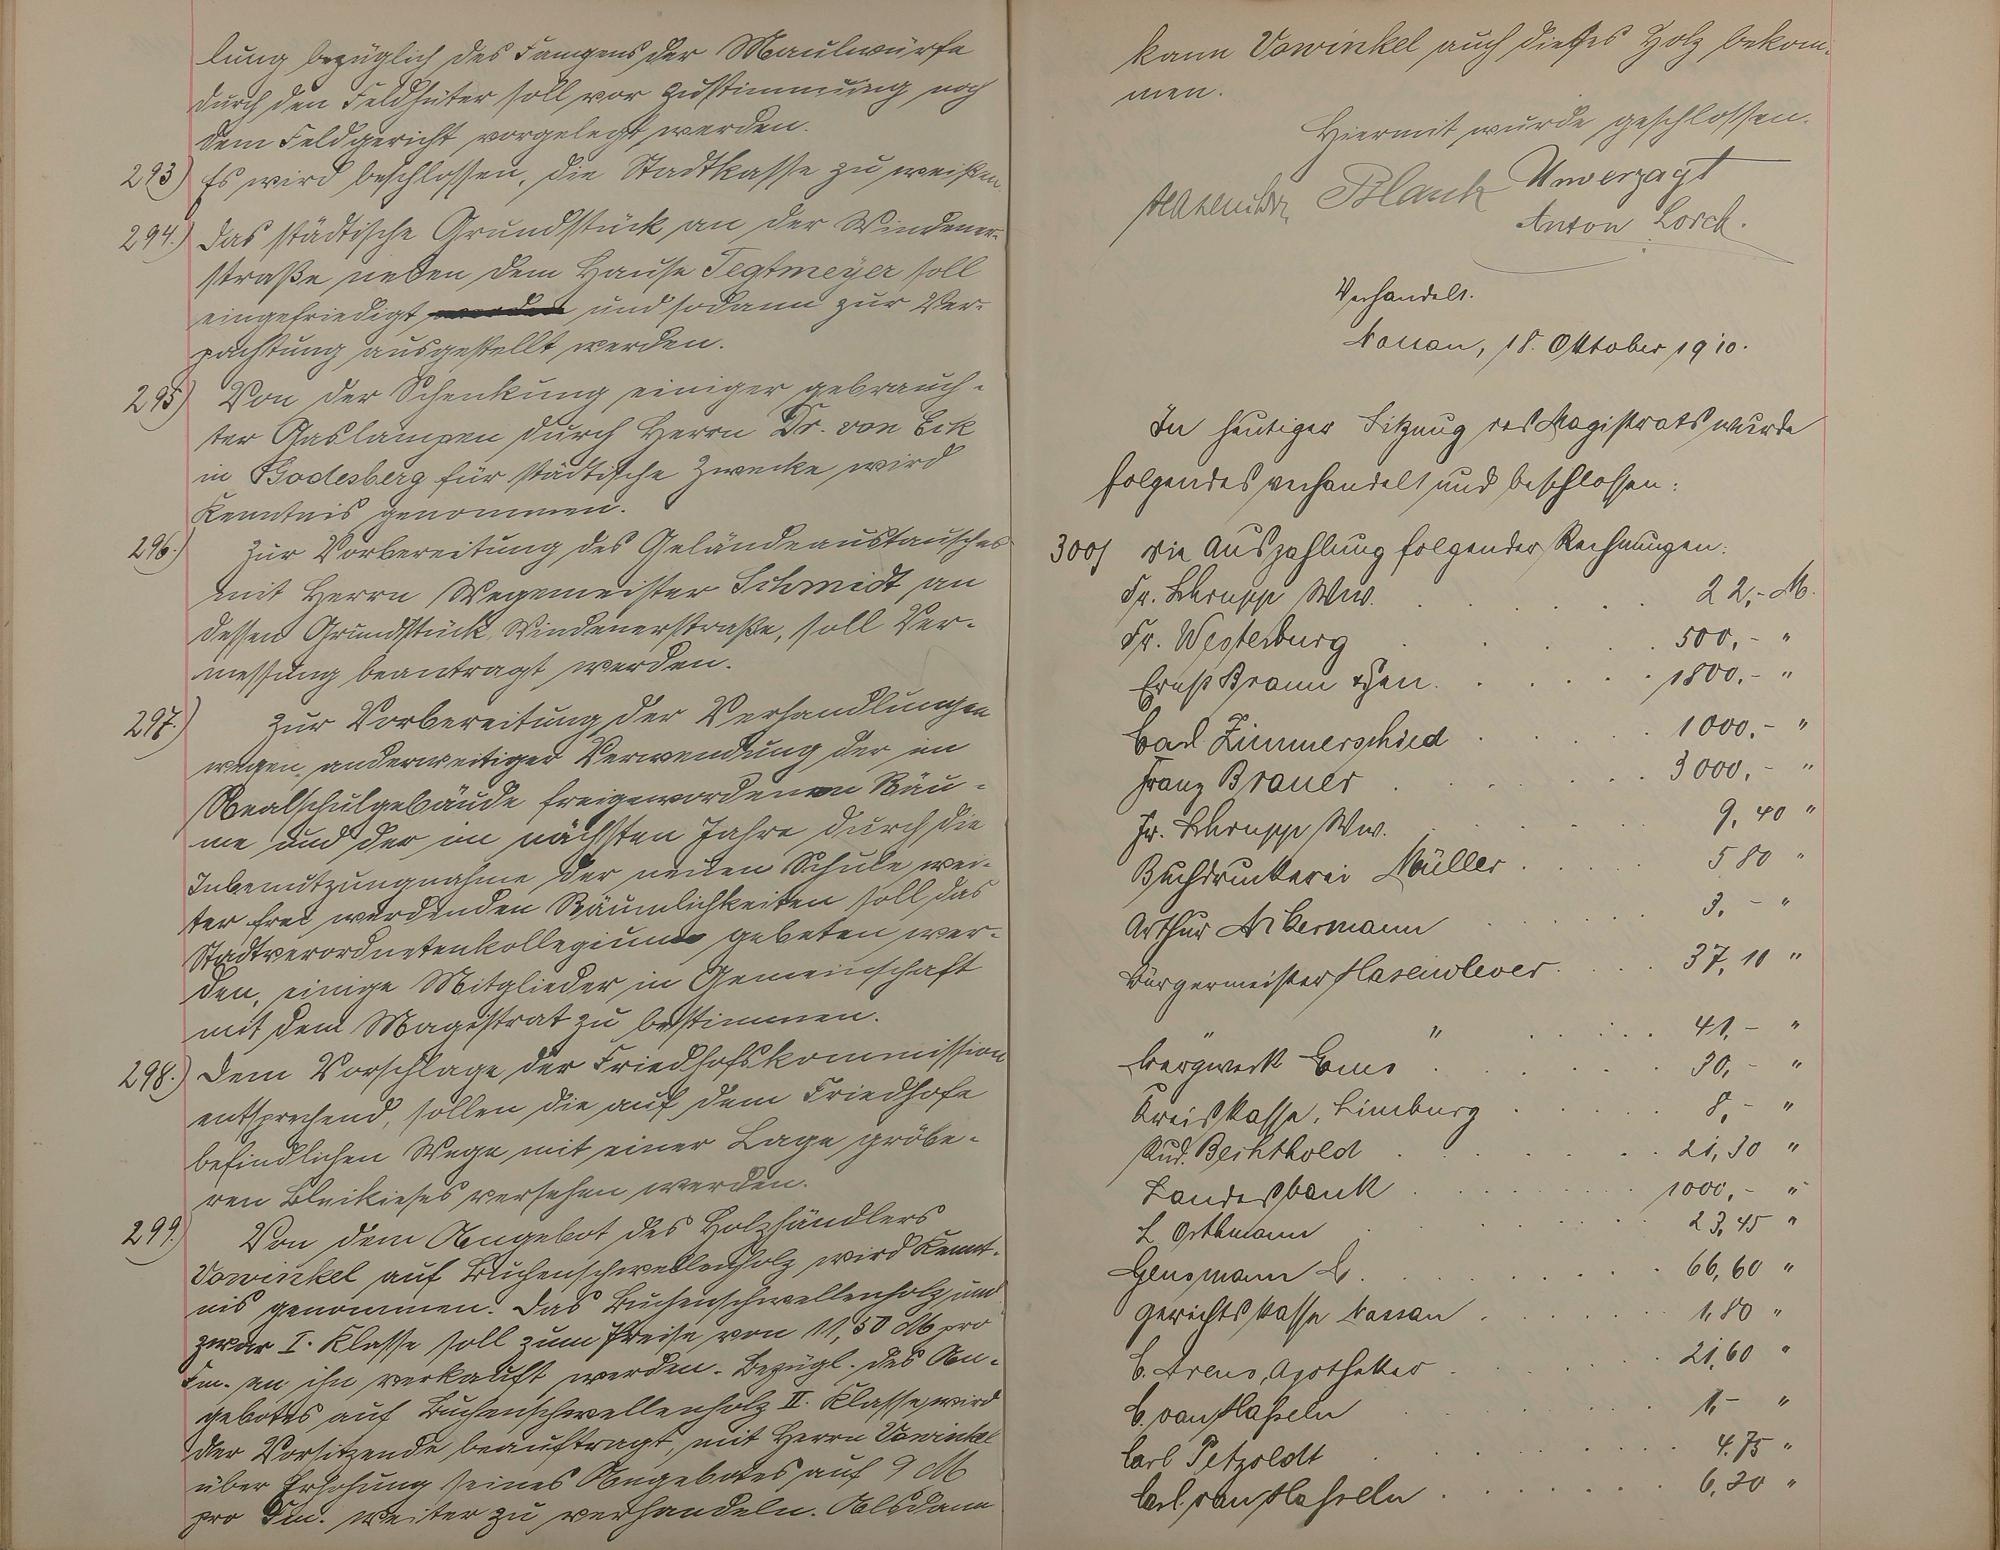 lung bezüglich des Fangens der Maulwürfe
durch den Feldhüter soll vor Zustimmung noch
dem Feldgericht vorgelegt werden.
293) Es wird beschlossen, die Stadtkasse zu weißen.
294.) Das städtische Grundstück an der Windener-
straße neben dem Hause Tegtmeyer soll
eingefriedigt, und sodann zur Ver-
pachtung ausgestellt werden.
295) Von der Schenkung einiger gebrauch-
ter Gaslampen durch Herrn Dr. von Eck
in Godesberg für städtische Zwecke wird
Kenntnis genommen.
296.) Zur Vorbereitung des Geländeaustausches
mit Herrn Wegemeister Schmidt an
dessen Grundstück, Windenerstraße, soll Ver-
messung beantragt werden.
297.) Zur Vorbereitung der Verhandlungen
wegen anderweitiger Verwendung der im
Realschulgebäude freigewordenen Räu-
me und der im nächsten Jahre durch die
Inbenutzungnahme der neuen Schule wei-
ter frei werdenden Räumlichkeiten soll das
Stadtverordnetenkollegium gebeten wer-
den, einige Mitglieder in Gemeinschaft
mit dem Magistrat zu bestimmen.
298.) Dem Vorschlage der Friedhofskommission
entsprechend, sollen die auf dem Friedhofe
befindlichen Wege mit einer Lage gröbe-
ren Bleikieses versehen werden.
299.) Von dem Angebot des Holzhändlers
Vowinkel auf Buchenschwellenholz wird Kennt-
nis genommen. Das Buchenschwellenholz und
zwar I. Klasse soll zum Preise von 11,50 M pro
Fm. an ihn verkauft werden. Bezügl. des An-
gebotes auf Buchenschwellenholz II. Klasse wird
der Vorsitzende beauftragt, mit Herrn Vowinkel
über Erhöhung seines Angebotes auf 9 M
pro Fm. weiter zu verhandeln. Alsdann
kann Vowinkel auch dieses Holz bekom-
men.
Hiermit wurde geschlossen.
Hasenclever Blank Unverzagt
Anton Lorch.
Verhandelt.
Nassau, 18. Oktober 1910.
In heutiger Sitzung des Magistrats wurde
folgendes verhandelt und beschlossen:
300) Die Auszahlung folgender Rechnungen:
Fr. Schrupp Ww. 22,- M.
Fr. Westerburg 500,- "
Ernst Braun 1800,- "
Carl Zimmerschied 1000,- "
Franz Brauer 3000,- "
Fr. Schrupp Ww. 9,40 "
Buchdruckerei Müller 5 80 "
Arthur Ackermann 3,- "
Bürgermeister Hasenclever 37,10 "
" " 41,- "
Bergwerk Ems 30,- "
Kreiskasse, Limburg 8,- "
Rud. Bechthold 21,30 "
Landesbank 1000,- "
L. Orthmann 23,45 "
Gensmann C. 66,60 "
Gerichtskasse Nassau 1,80 "
C. Arens, Apotheker 21,60 "
C. van Hasseln 1,- "
Carl Petzoldt 4.75 "
Carl van Hasseln 6,30 "